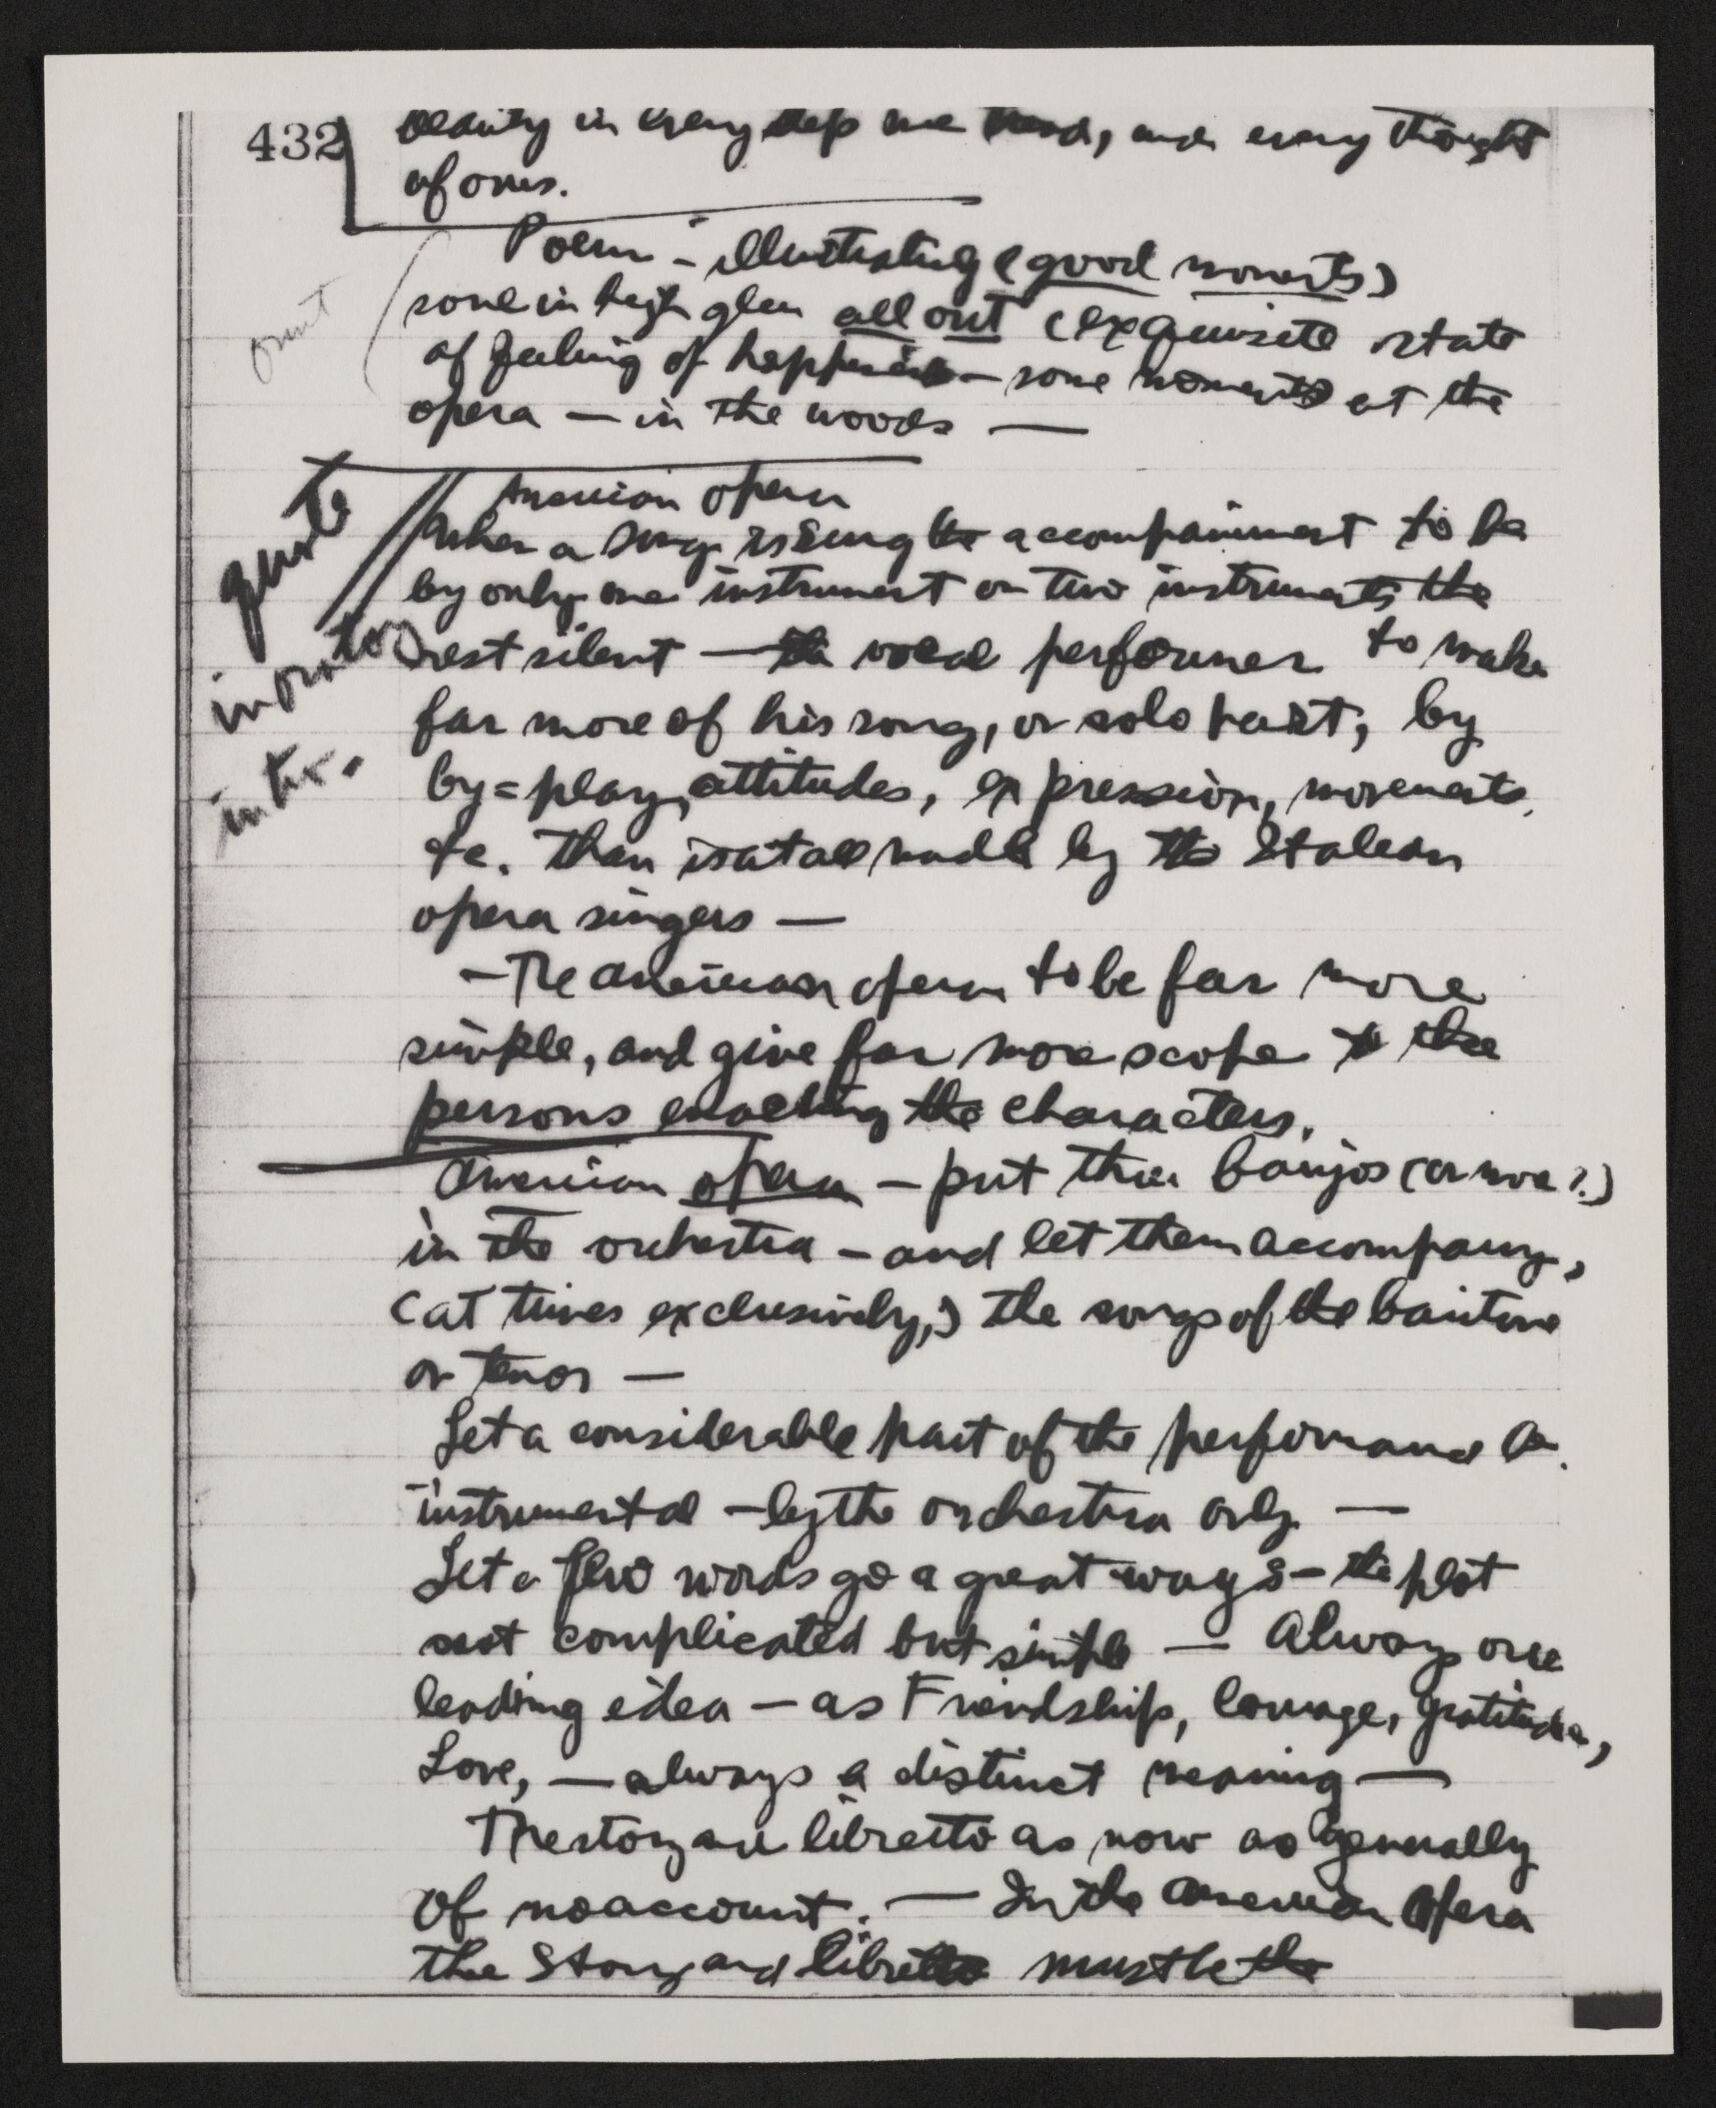 432
beauty in every step we tread, and every thought
of ours.
Poem - illustrating (good moments)
omit
soul in high glee all out (exquisite state
of feeling of happiness - some moments at the
opera — in the woods —
quote
in oratory
inter.
American opera
When a song is sung the accompaniment to be
by only one instrument or two instruments the
rest silent — the vocal performer to make
far more of his song, or solo part, by
by=play, attitudes, expression, movements,
&c. than is at all made by the Italian
opera singers —
— The American opera to be far more
simple, and give far more scope to the
persons enacting the characters.
American opera — put three banjos (or more?)
in the orchestra — and let them accompany,
(at times exclusively,) the songs of the baritone
or tenor —
Let a considerable part of the performance be
instrumental — by the orchestra only —
Let a few words go a great ways — the plot
not complicated but simple — Always one
leading idea — as Friendship, Courage, gratitude,
Love, — always a distinct meaning —
The story and libretto as now are generally
of no account. — In the American Opera
the Story and libretto must be the